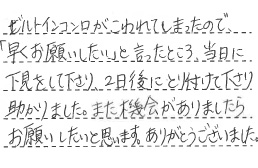 ビルトインコンロがこわれてしまったので、
「早くお願いしたい」と言ったところ、当日に
下見をして下さり、2日後にとり付けて下さり
助かりました。また機会がありましたら
お願いしたいと思います。ありがとうございました。